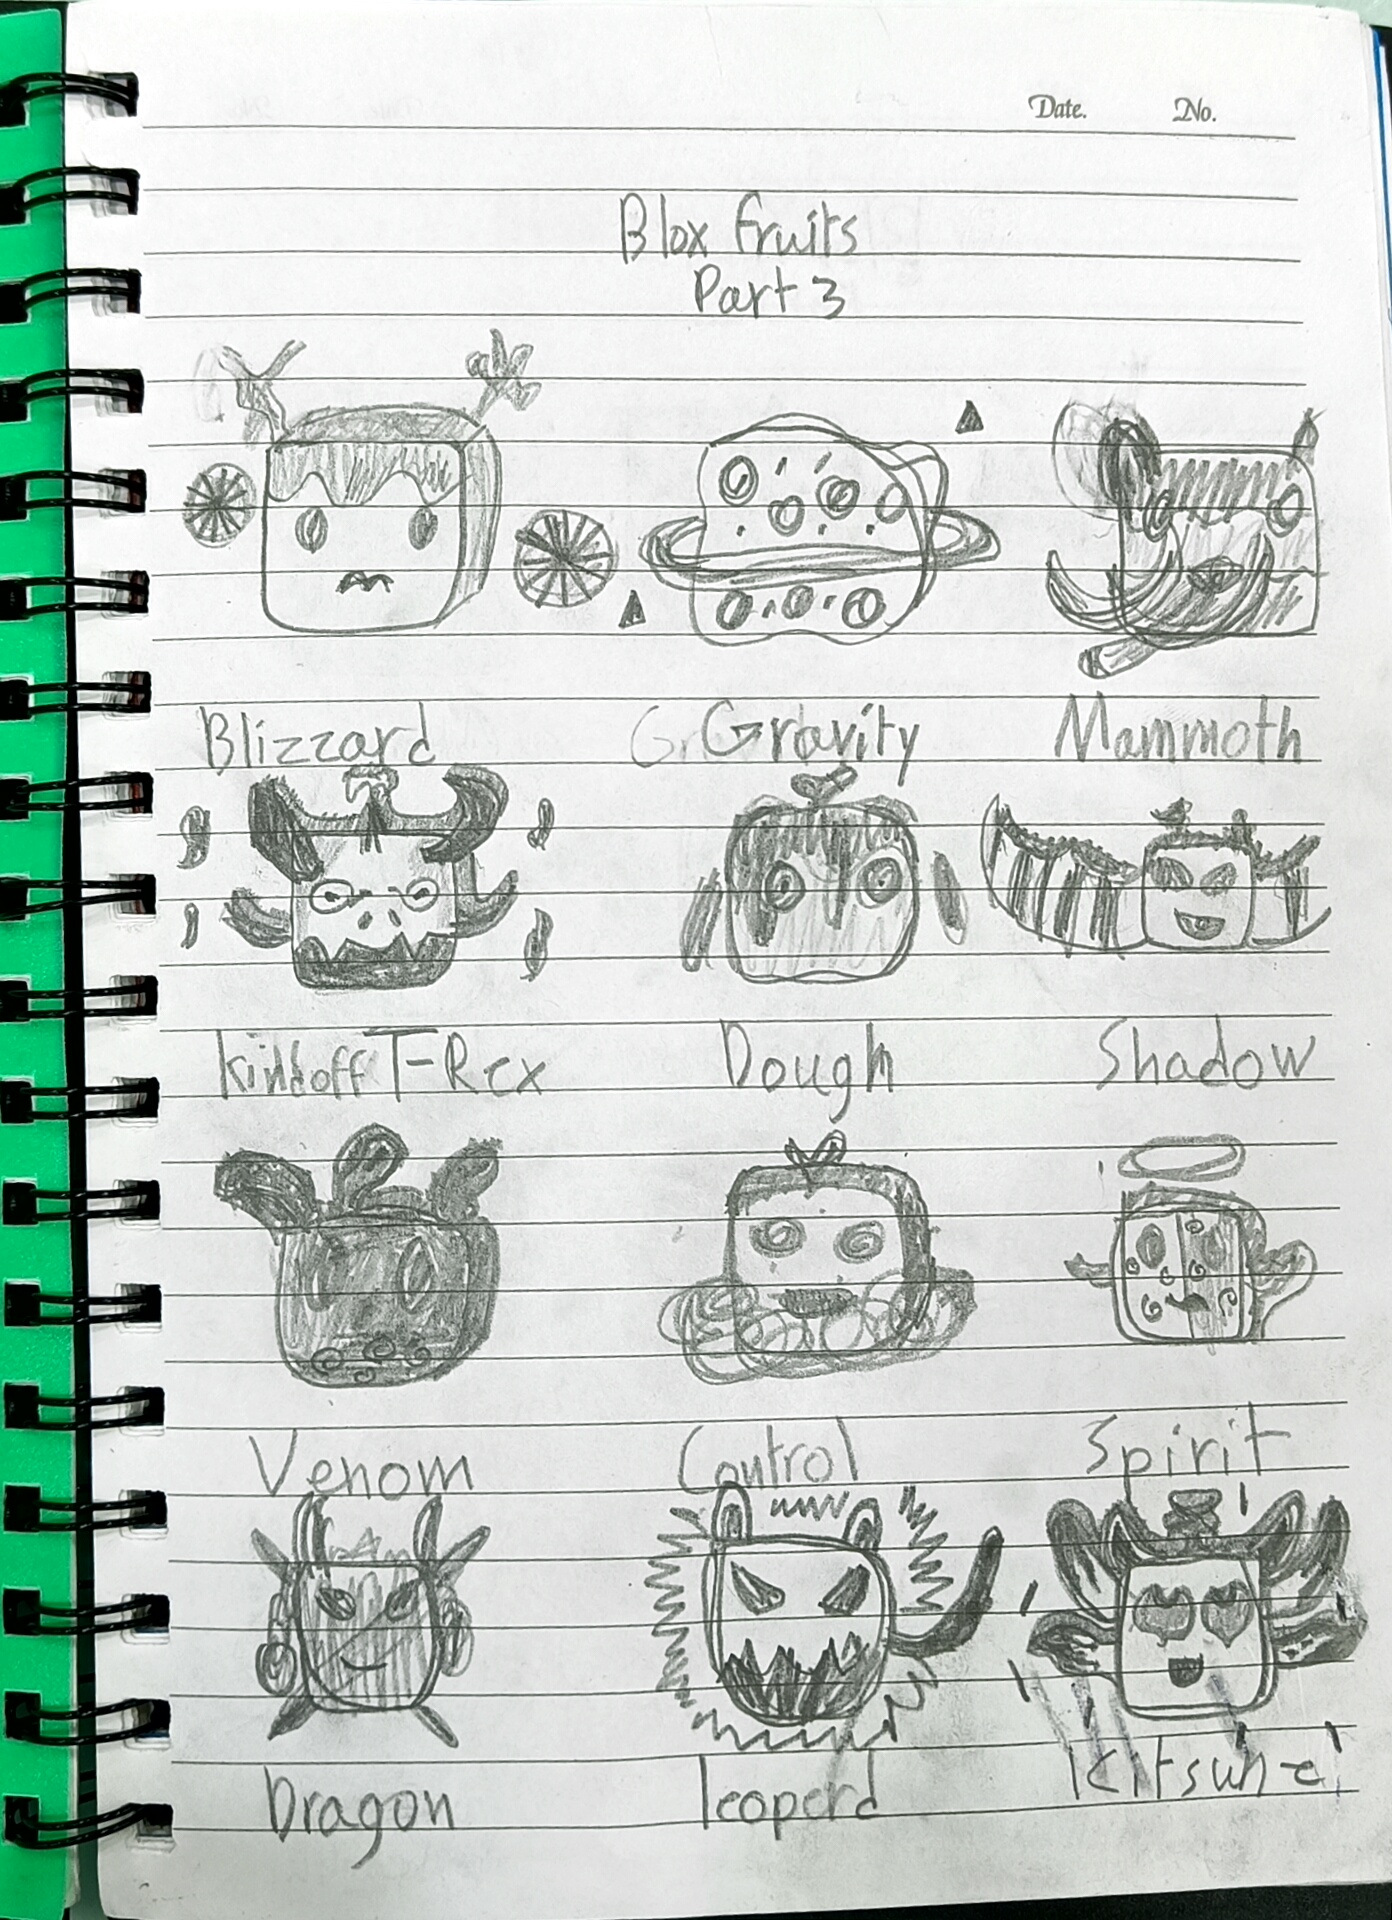 Date. No.
Blox fruits
Part 3
Blizzard Gravity Mammoth
kindoff T-Rex Dough Shadow
Venom Control Spirit
Dragon leoperd Kitsune